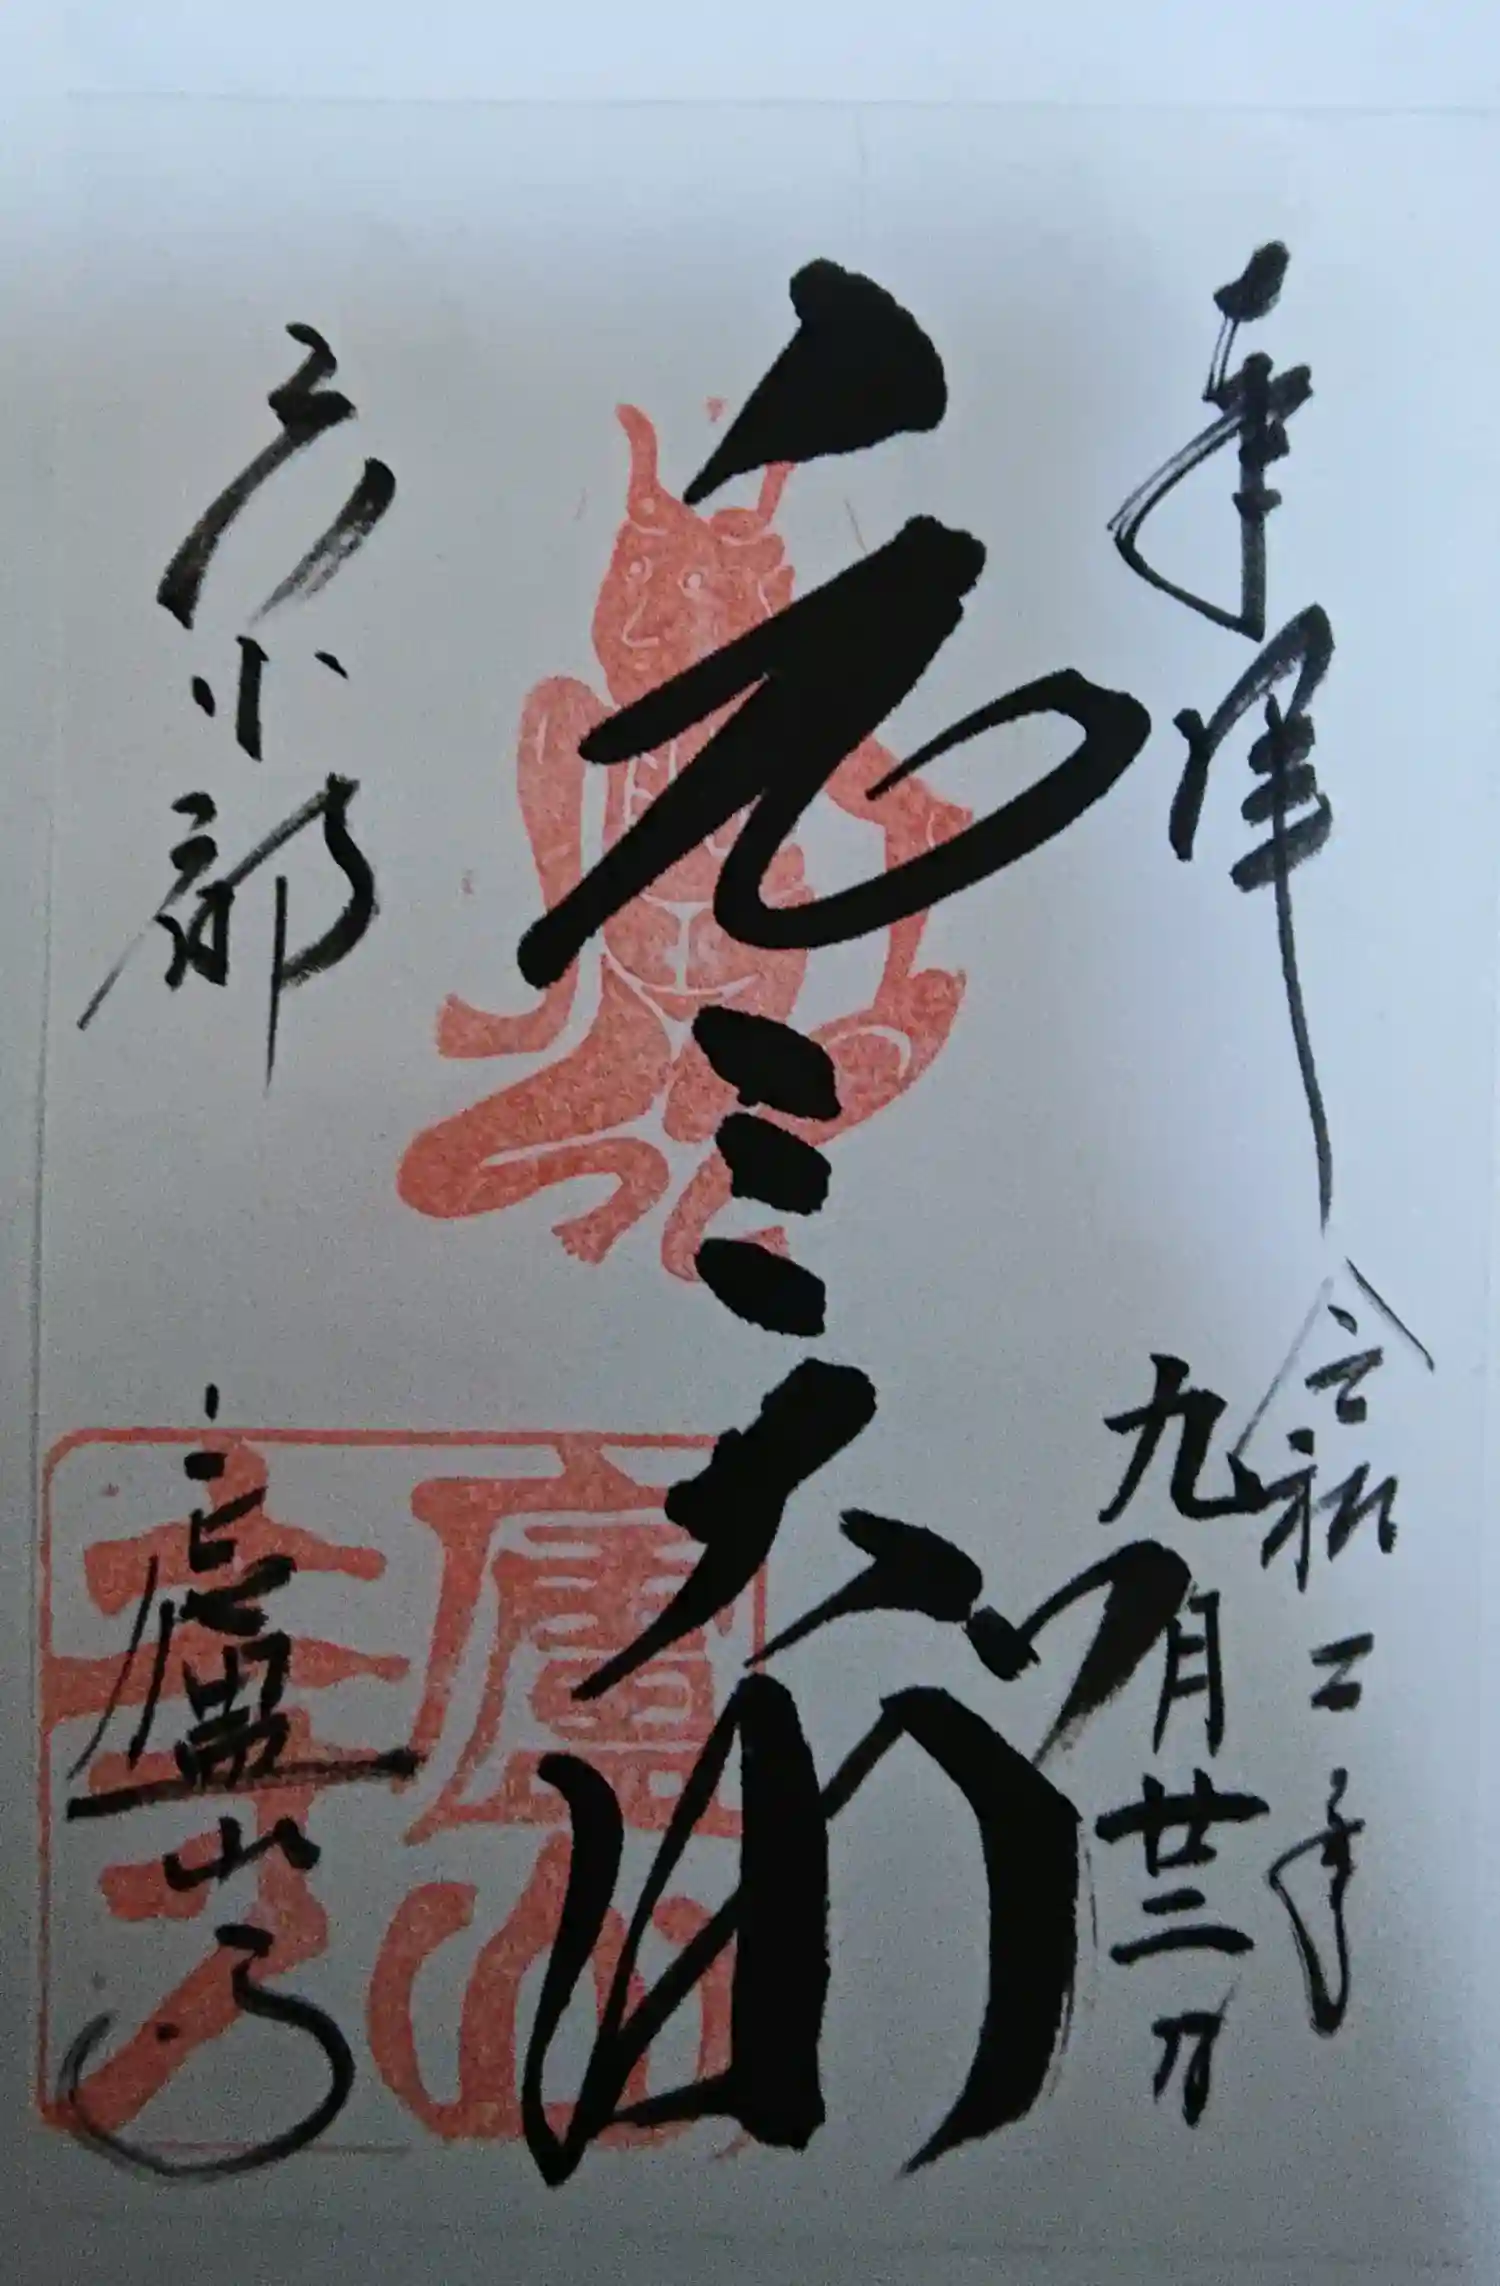 奉拝
令和二年
九月廿二日
元三大師
京都
廬山寺
廬山寺